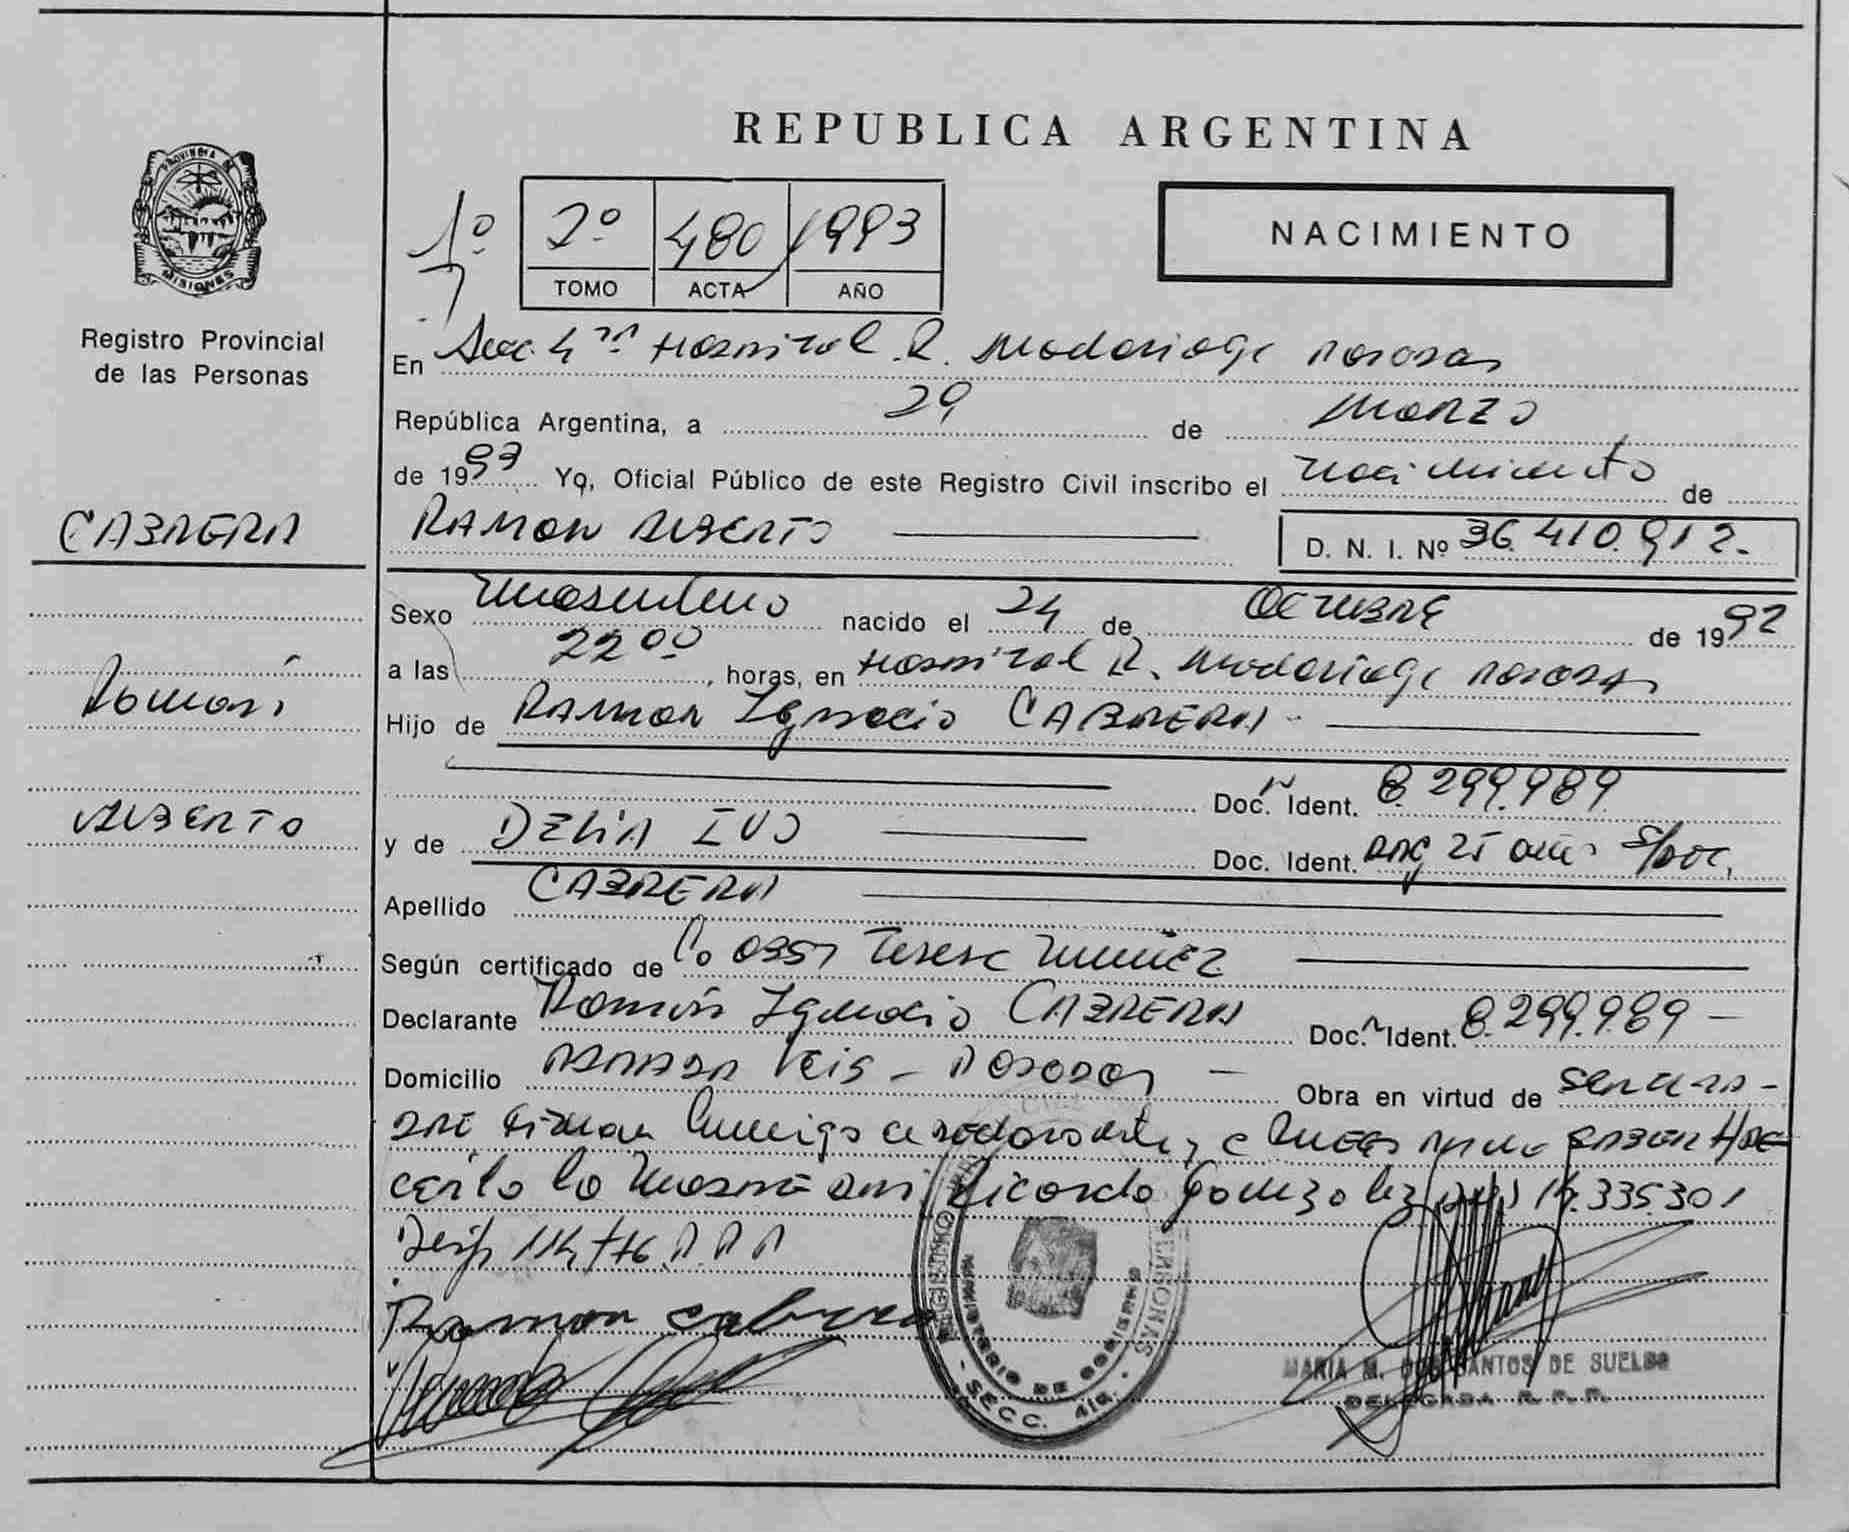 REPUBLICA ARGENTINA
PROVINCIA DE
MISIONES
Registro Provincial
de las Personas
1º
2º 480 1993
TOMO ACTA AÑO
NACIMIENTO
En Secc. 4ta Hospital R. Madariaga Posadas
República Argentina, a 29 de Marzo
de 1993 Yo, Oficial Público de este Registro Civil inscribo el nacimiento de
CABRERA
RAMON ALBERTO
D. N. I. Nº 36.410.912.
Sexo Masculino nacido el 24 de OCTUBRE de 1992
a las 22 00, horas, en Hospital R. Madariaga Posadas
Ramón
Hijo de RAMON Ignacio CABRERA
Doc. Ident. 8.299.989
ALBERTO
y de DELIA IVO Doc. Ident. Arg 25 años S/Doc.
Apellido CABRERA
Según certificado de Teresa
Declarante Ramón Ignacio CABRERA Doc. Ident. 8.299.989
Domicilio Posadas Obra en virtud de
firman y
lo Ricardo Gonzalez 335301
Ramon Cabrera
REGISTRO PERSONAS
MINISTERIO DE GOBIERNO
SECC. 4ta.
MARIA M. DOS SANTOS DE SUELDO
DELEGADA R. P. P.